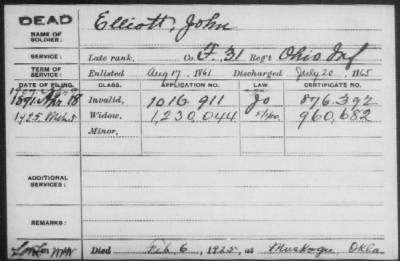 DEAD
NAME OF SOLDIER: Elliott, John
SERVICE: Late rank, Co. F. 31 Reg't Ohio Inf
TERM OF SERVICE: Enlisted Aug 17, 1861 Discharged July 20, 1865
DATE OF FILING. CLASS. APPLICATION NO. LAW. CERTIFICATE NO.
1891 Mar 18 Invalid, 1016 911 876.392
1925 Widow, 1,230,044 960,682
Minor,
ADDITIONAL SERVICES:
REMARKS:
Died Feb 6, 1925, at Muskogee, Okla